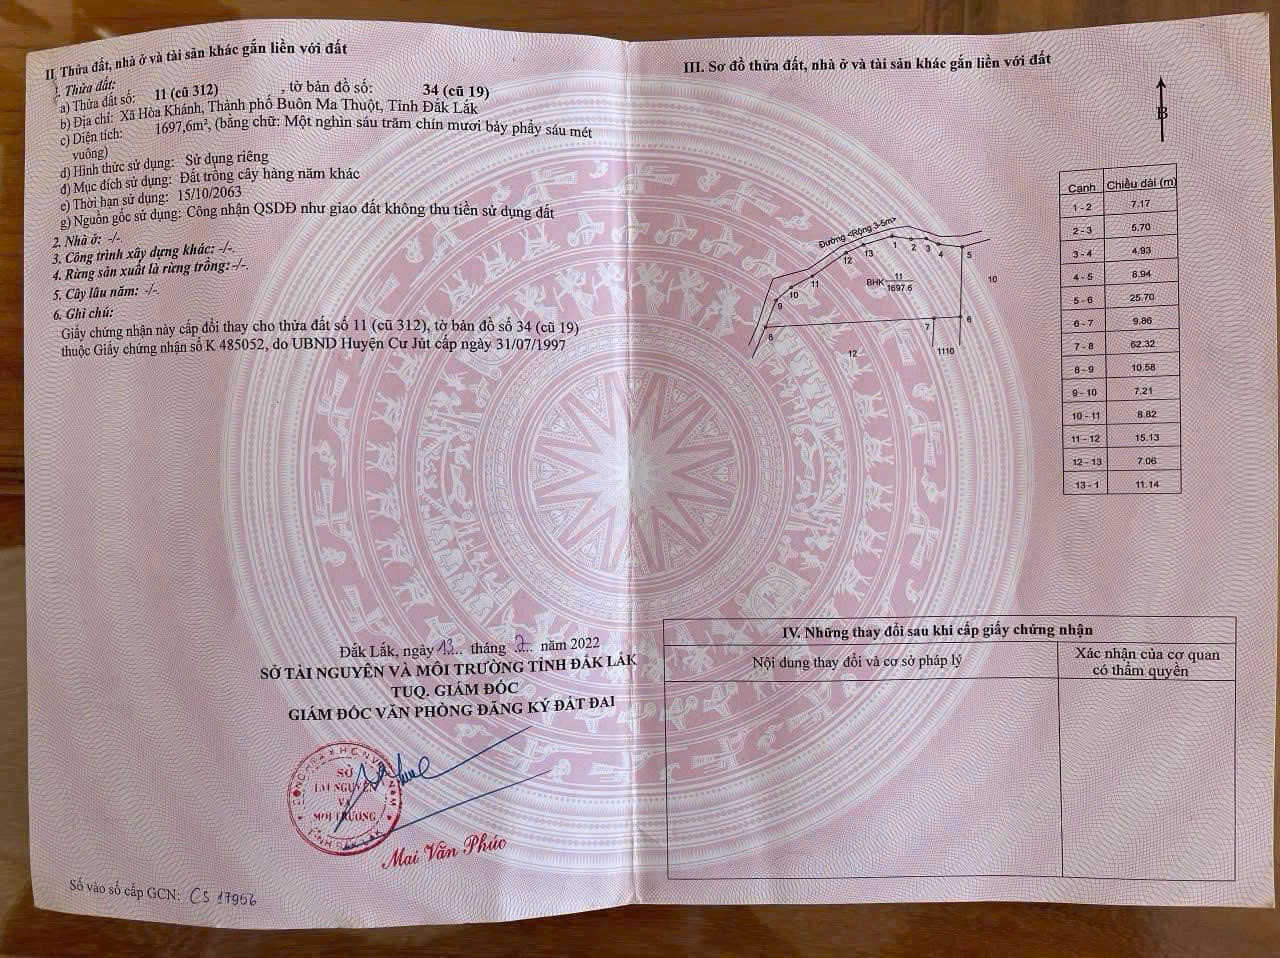 II. Thửa đất, nhà ở và tài sản khác gắn liền với đất
1. Thửa đất:
a) Thửa đất số: 11 (cũ 312), tờ bản đồ số: 34 (cũ 19)
b) Địa chỉ: Xã Hòa Khánh, Thành phố Buôn Ma Thuột, Tỉnh Đắk Lắk
c) Diện tích: 1697,6m², (bằng chữ: Một nghìn sáu trăm chín mươi bảy phẩy sáu mét
vuông)
d) Hình thức sử dụng: Sử dụng riêng
đ) Mục đích sử dụng: Đất trồng cây hàng năm khác
e) Thời hạn sử dụng: 15/10/2063
g) Nguồn gốc sử dụng: Công nhận QSDĐ như giao đất không thu tiền sử dụng đất
2. Nhà ở: -/-
3. Công trình xây dựng khác: -/-.
4. Rừng sản xuất là rừng trồng: -/-.
5. Cây lâu năm: -/-.
6. Ghi chú:
Giấy chứng nhận này cấp đổi thay cho thửa đất số 11 (cũ 312), tờ bản đồ số 34 (cũ 19)
thuộc Giấy chứng nhận số K 485052, do UBND Huyện Cư Jút cấp ngày 31/07/1997
Đắk Lắk, ngày 13.. tháng .2.. năm 2022
SỞ TÀI NGUYÊN VÀ MÔI TRƯỜNG TỈNH ĐẮK LẮK
TUQ. GIÁM ĐỐC
GIÁM ĐỐC VĂN PHÒNG ĐĂNG KÝ ĐẤT ĐAI
SỞ
TÀI NGUYÊN
VÀ
MÔI TRƯỜNG
TỈNH ĐẮK LẮK
Mai Văn Phúc
Số vào sổ cấp GCN: CS 17956
III. Sơ đồ thửa đất, nhà ở và tài sản khác gắn liền với đất
B
Đường <Rộng 3-5m>
1
2
3
4
5
13
12
11
10
9
8
7
6
BHK 11
1697.6
10
12
1110
Cạnh Chiều dài (m)
1 - 2 7.17
2 - 3 5.70
3 - 4 4.93
4 - 5 8.94
5 - 6 25.70
6 - 7 9.86
7 - 8 62.32
8 - 9 10.58
9 - 10 7.21
10 - 11 8.82
11 - 12 15.13
12 - 13 7.06
13 - 1 11.14
IV. Những thay đổi sau khi cấp giấy chứng nhận
Nội dung thay đổi và cơ sở pháp lý
Xác nhận của cơ quan
có thẩm quyền